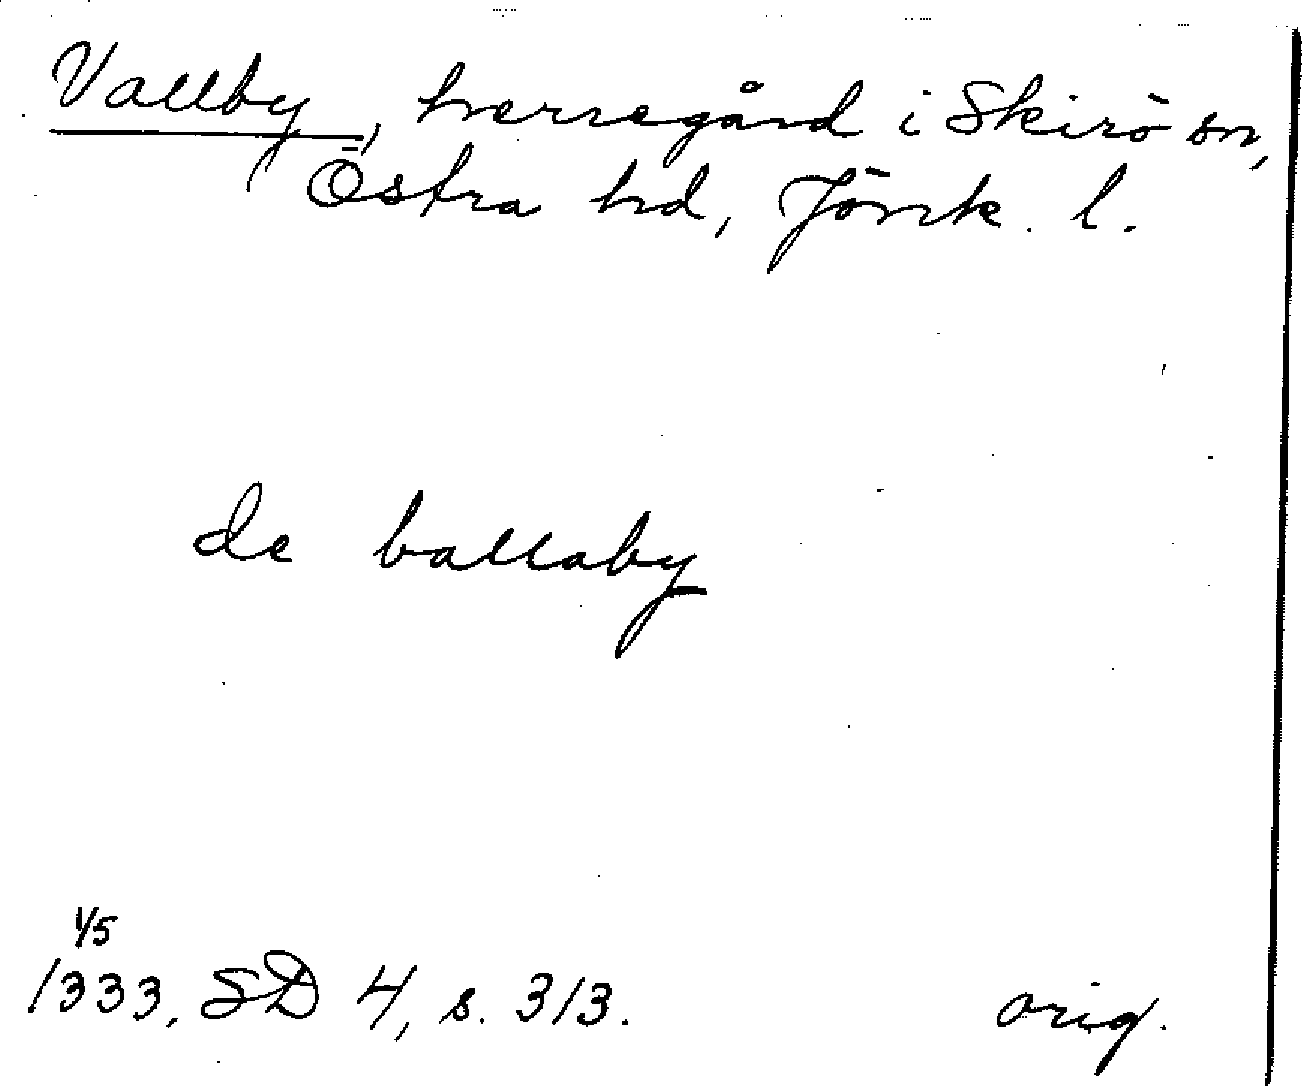 Vallby, herregård i Skirö sn,
Östra hd, Jönk. l.
de ballaby
1/5
1333, SD 4, s. 313.
orig.